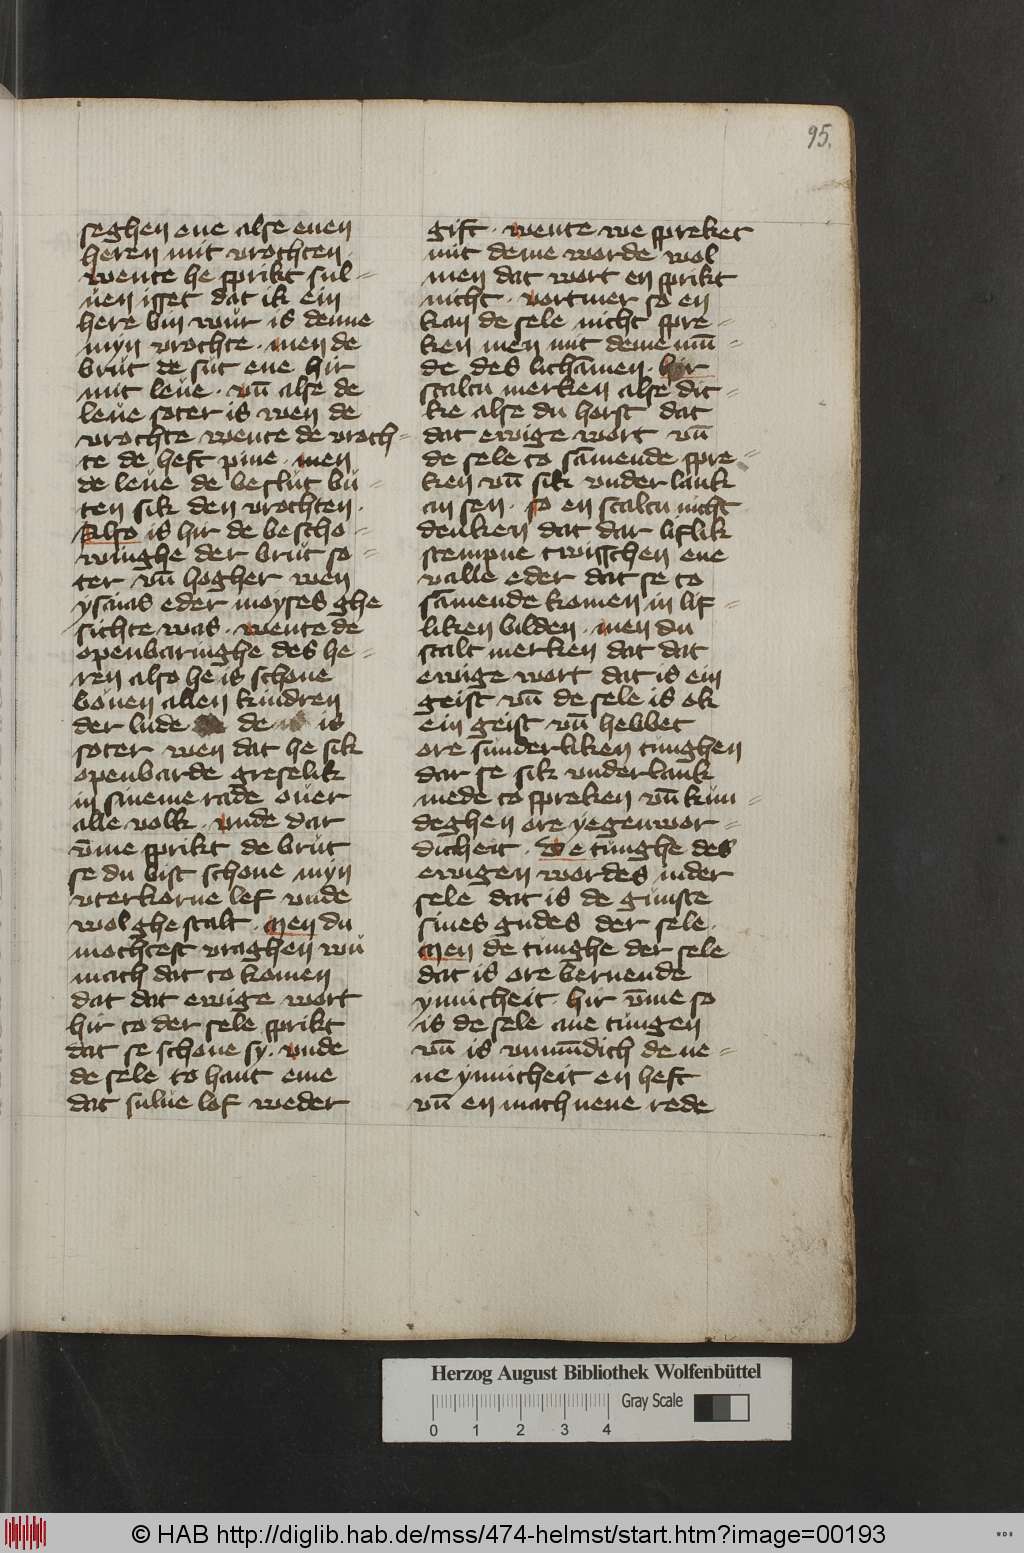 95.
seghen ene alse enen
heren mit vrochten ·
wente he sprikt sul-
uen isset dat ik ein
here bin wur is denne
myn vrochte · men de
brut de sut ene hir
mit leue · vn̄ alse de
leue soter is wen de
vrochte wente de vroch-
te de heft pine · men
de leue de beslut bu-
ten sik den vrochten ·
Also is hir de bescho-
winghe der brut so-
ter vn̄ hogher wen
ysaias eder moyses ghe
sichte was · wente de
openbaringhe des he-
ren also he is schone
bouen allen kindren
der lude de is
soter wen dat he sik
openbarde greselik
in sineme rade ouer
alle volk · vnde dar
v̄me sprikt de brut
se du bist schone myn
vterkorne lef vnde
wol ghestalt · Men du
mochtest vraghen wu
mach dat to komen
dat dat ewige wort
hir to der sele sprikt
dat se schone sy · vnde
de sele to hant eme
dat sulue lof weder
gift · wente we spreket
mit deme worde wol
men dat wort en sprikt
nicht · vortmer so en
kan de sele nicht spre-
ken men mit deme mū-
de des lichāmen · hir
scaltu merken alse dic-
ke alse du horst dat
dat ewige wort vn̄
de sele to sāmende spre-
ken vn̄ sik vnderlank
an sen · so en scaltu nicht
denken dat dar liflik
stempne twisschen ene
valle eder dat se to
sāmende komen in lif-
liken bilden · men du
scalt merken dat dat
ewige wort dat is ein
geist vn̄ de sele is ok
ein geist vn̄ hebbet
ore sunderliken tunghen
dar se sik vnderlank
mede to spreken vn̄ kun-
deghen ore yegenwor-
dicheit · De tunghe des
ewigen wordes in der
sele dat is de gunste
sines gudes der sele ·
Men de tunghe der sele
dat is ore bernende
ynnicheit · hir v̄me so
is de sele ane tungen
vn̄ is vnmūdich de ne-
ne ynnicheit en heft
vn̄ en mach nene rede
Herzog August Bibliothek Wolfenbüttel
Gray Scale
0 1 2 3 4
© HAB http://diglib.hab.de/mss/474-helmst/start.htm?image=00193